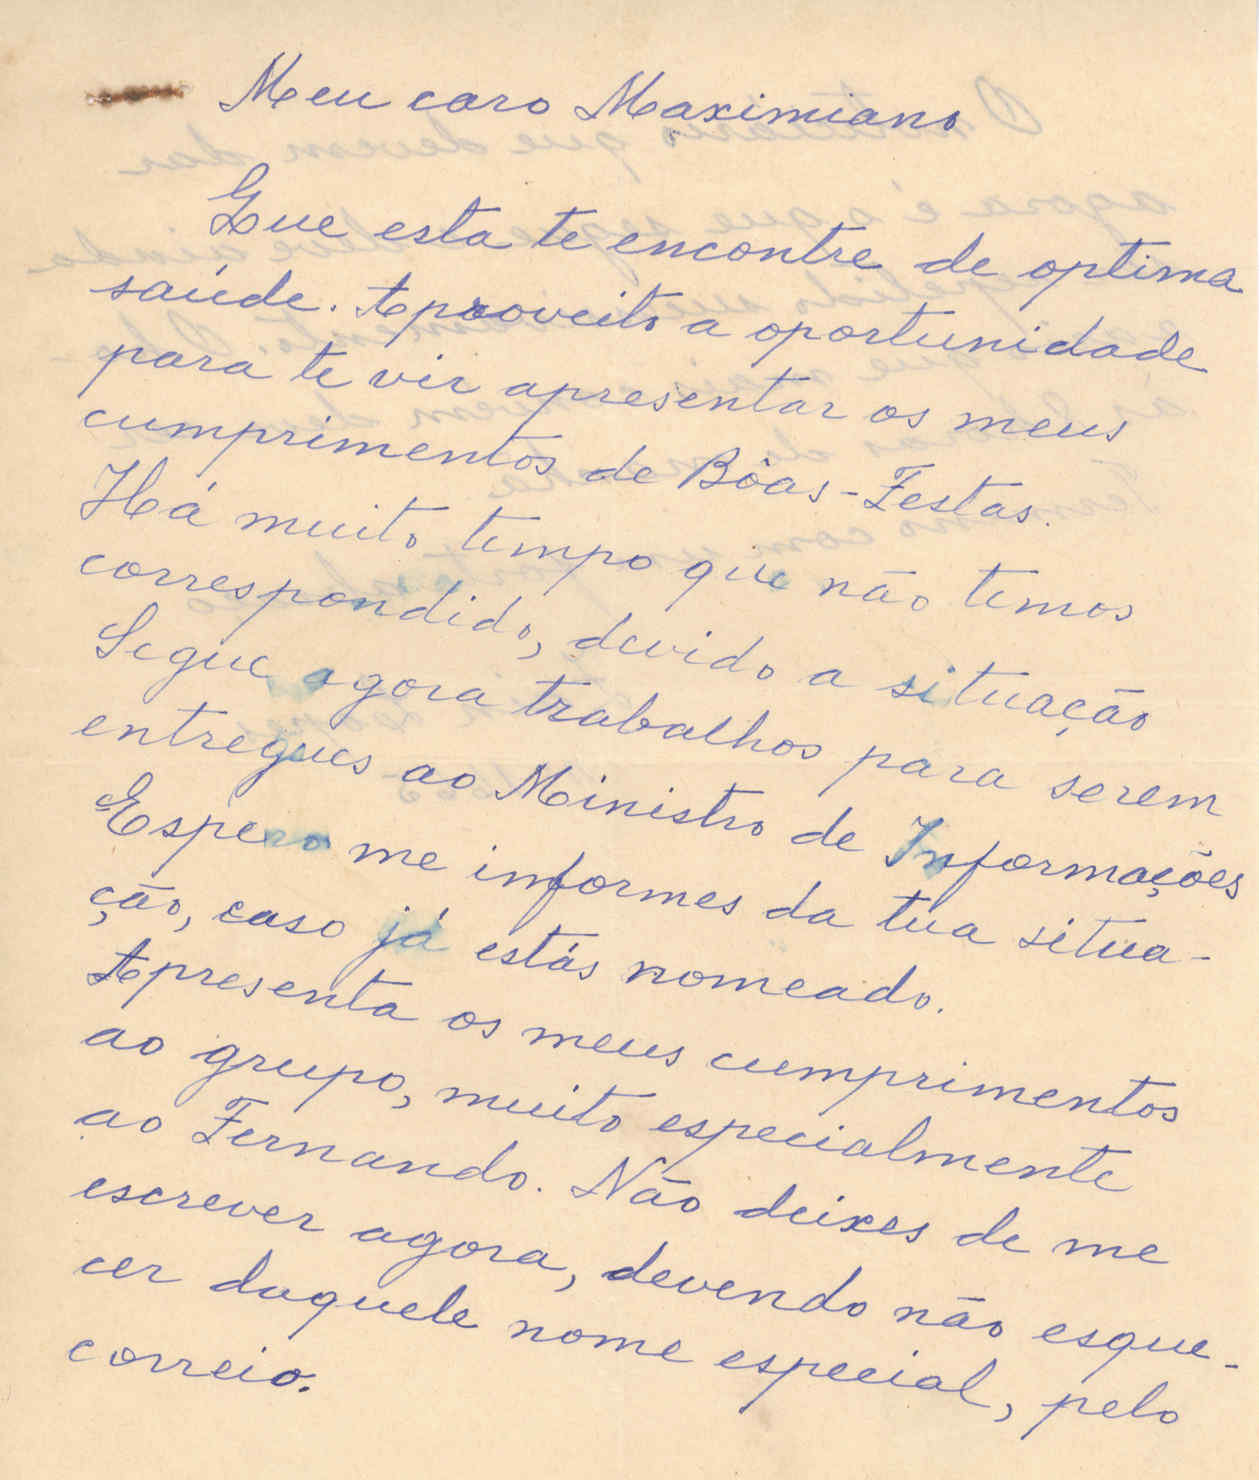 Meu caro Maximiano
Que esta te encontre de optima
saúde. Aproveito a oportunidade
para te vir apresentar os meus
cumprimentos de Bôas-Festas.
Há muito tempo que não temos
correspondido, devido a situação
Segue agora trabalhos para serem
entregues ao Ministro de Informações
Espero me informes da tua situa-
ção, caso já estás nomeado.
Apresenta os meus cumprimentos
ao grupo, muito especialmente
ao Fernando. Não deixes de me
escrever agora, devendo não esque-
cer daquele nome especial, pelo
correio.